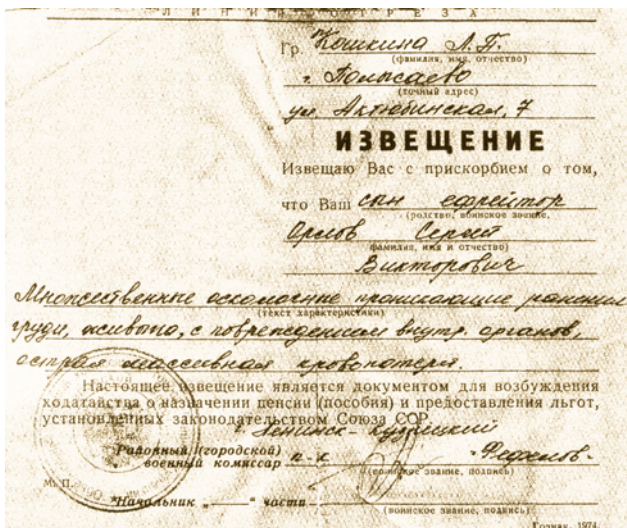 ЛИНИЯ ОТРЕЗА
Гр. Кошкина Л. П.
(фамилия, имя, отчество)
г. Полысаево
(точный адрес)
ул. Актюбинская, 7
ИЗВЕЩЕНИЕ
Извещаю Вас с прискорбием о том,
что Ваш сын ефрейтор
(родство, воинское звание,
Орлов Сергей
фамилия, имя и отчество)
Викторович
Множественные осколочные проникающие ранения
(текст характеристики)
груди, живота, с повреждением внутр. органов,
острая массивная кровопотеря.
Настоящее извещение является документом для возбуждения
ходатайства о назначении пенсии (пособия) и предоставления льгот,
установленных законодательством Союза ССР.
г. Ленинск-Кузнецкий
Районный (городской)
военный комиссар п-к
(воинское звание, подпись)
М. П.
"Начальник „ “ части
(воинское звание, подпись)
Гознак. 1974.